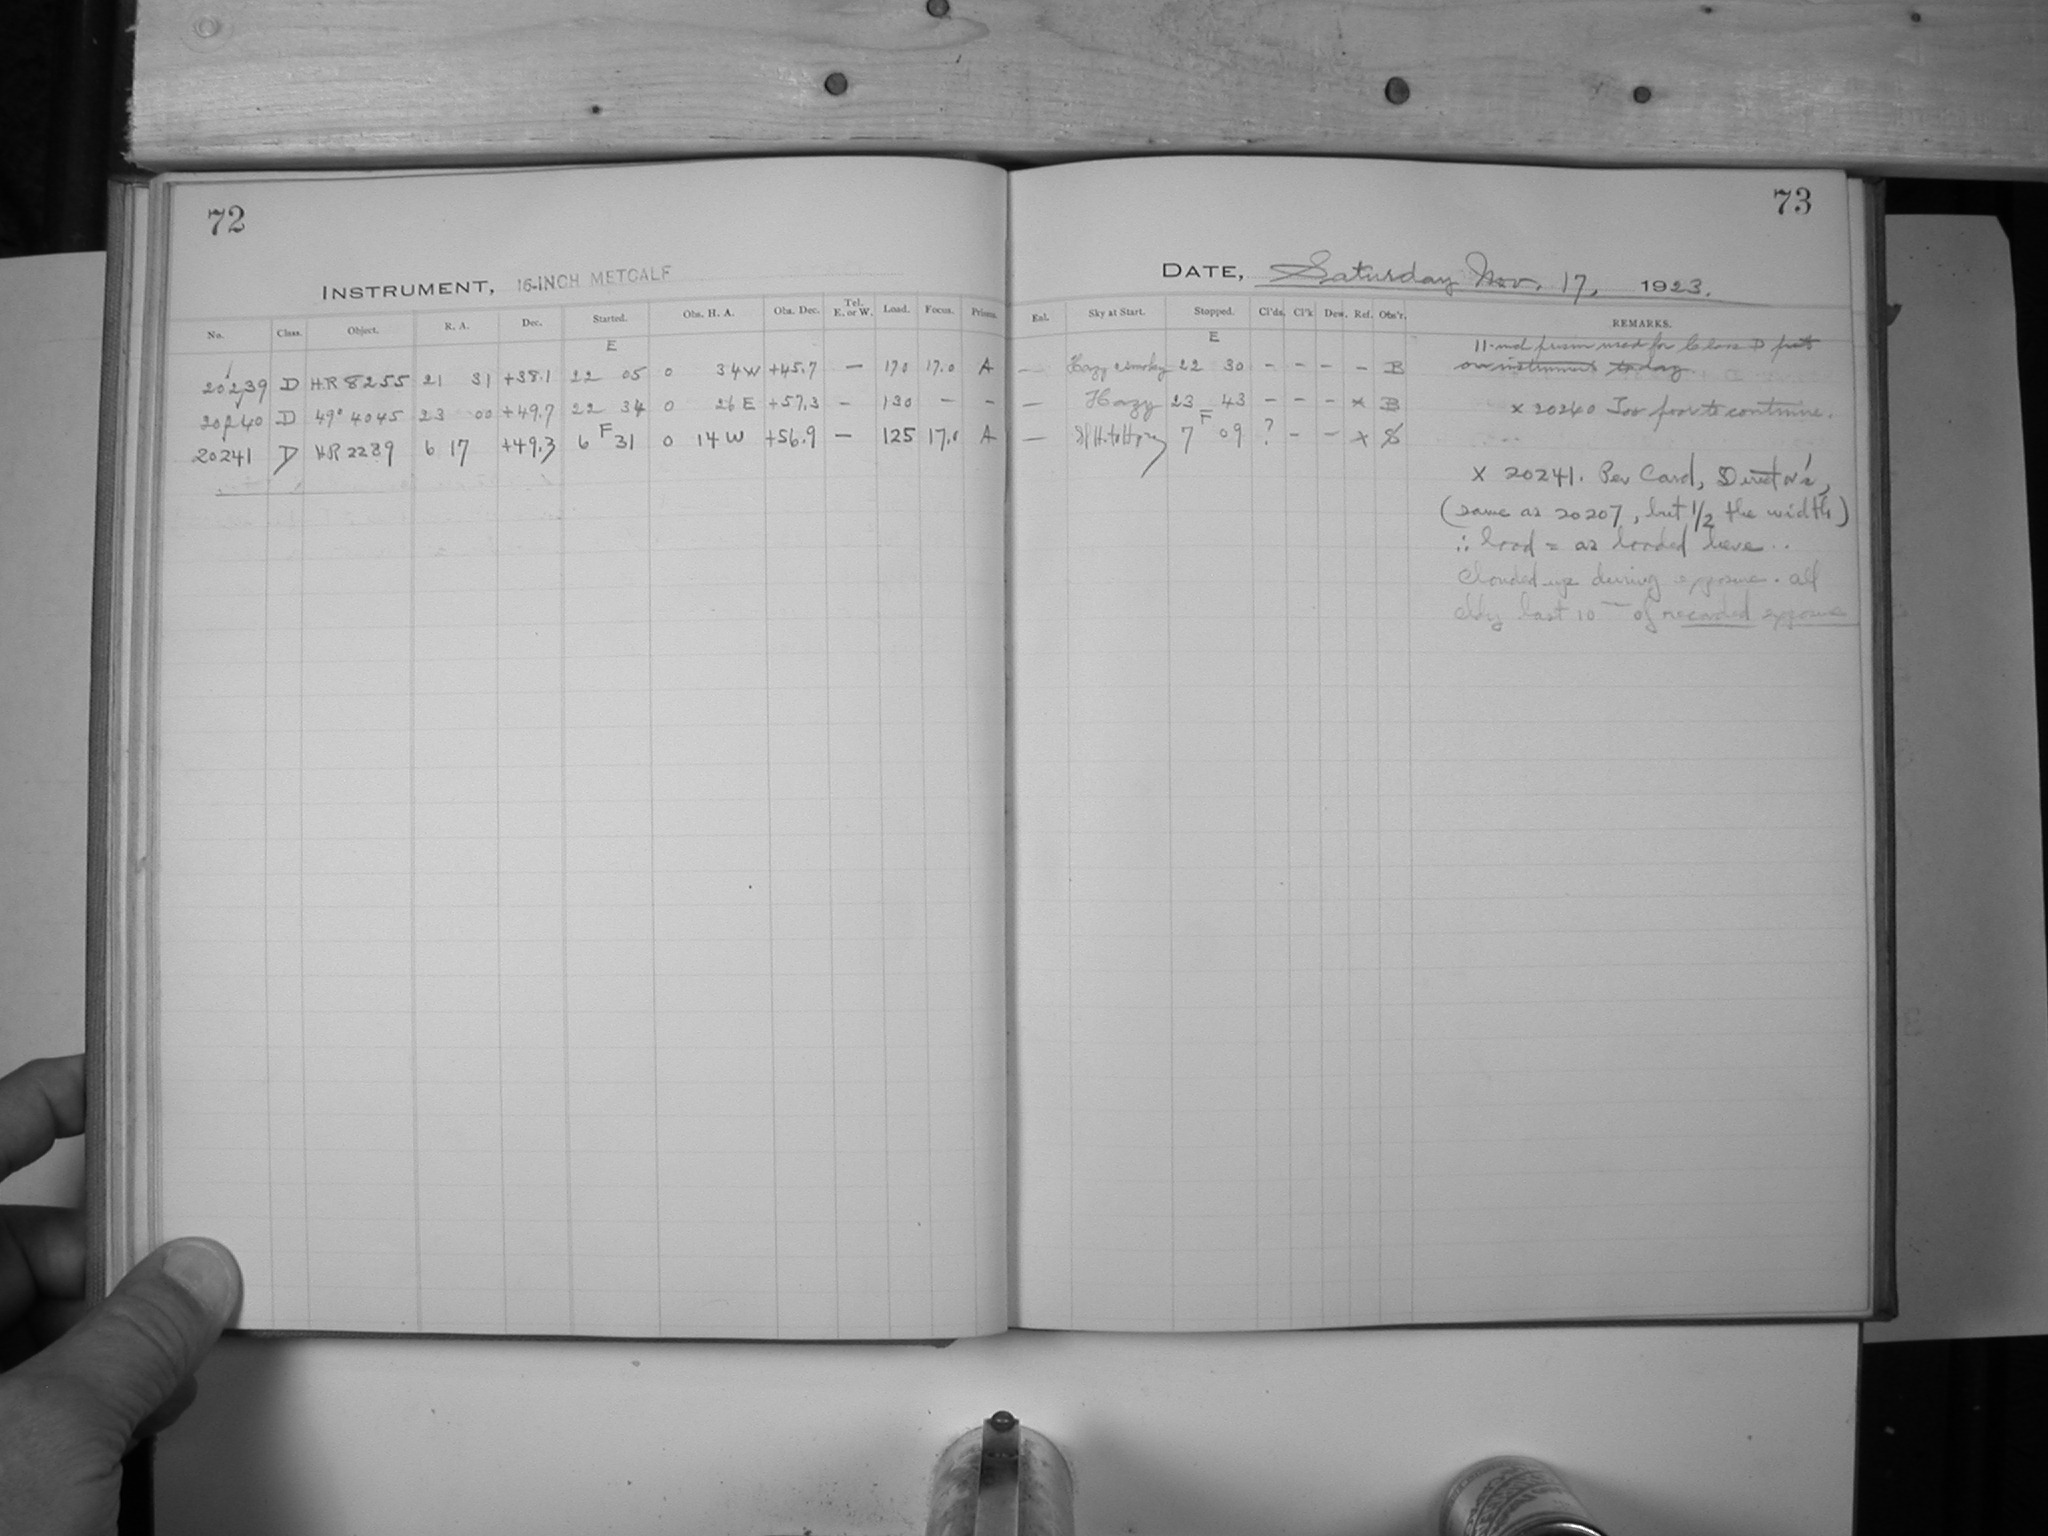 72
73
INSTRUMENT, 16-INCH METCALF
DATE, Saturday Nov. 17, 1923.
No. Class. Object. R. A. Dec. Started. Obs. H. A. Obs. Dec. Tel. E. or W. Load. Focus. Prisms. Eal. Sky at Start. Stopped. Cl'ds. Cl'k Dew. Ref. Obs'r. REMARKS.
E E
20239 D HR 8255 21 31 +38.1 22 05 0 34 W +45.7 — 170 17.0 A — Hazy & smoky 22 30 – – – – B
20240 D 49° 4045 23 00 +49.7 22 34 0 26 E +57.3 – 130 – – — Hazy 23 43 – – – x B
F F
20241 D HR 2289 6 17 +49.3 6 31 0 14 W +56.9 — 125 17.0 A — 7 09 ? – – x
11- prism used for Class D
on instrument today.
x 20240 Too poor to continue.
x 20241. Per Card, Director's,
(same as 20207, but 1/2 the width)
∴ load = as loaded here..
Clouded up during exposure. all
cldy last 10 of recorded exposure